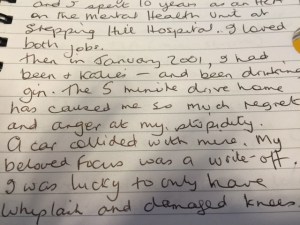 and I spent 10 years as an HCA
on the Mental Health Unit at
Stepping Hill Hospital. I loved
both jobs.
then in January 2001, I had
been + – and been drinking
gin. The 5 minute drive home
has caused me so much regret
and anger at my stupidity.
A car collided with mine. My
beloved Focus was a write-off.
I was lucky to only have
whiplash and damaged knees